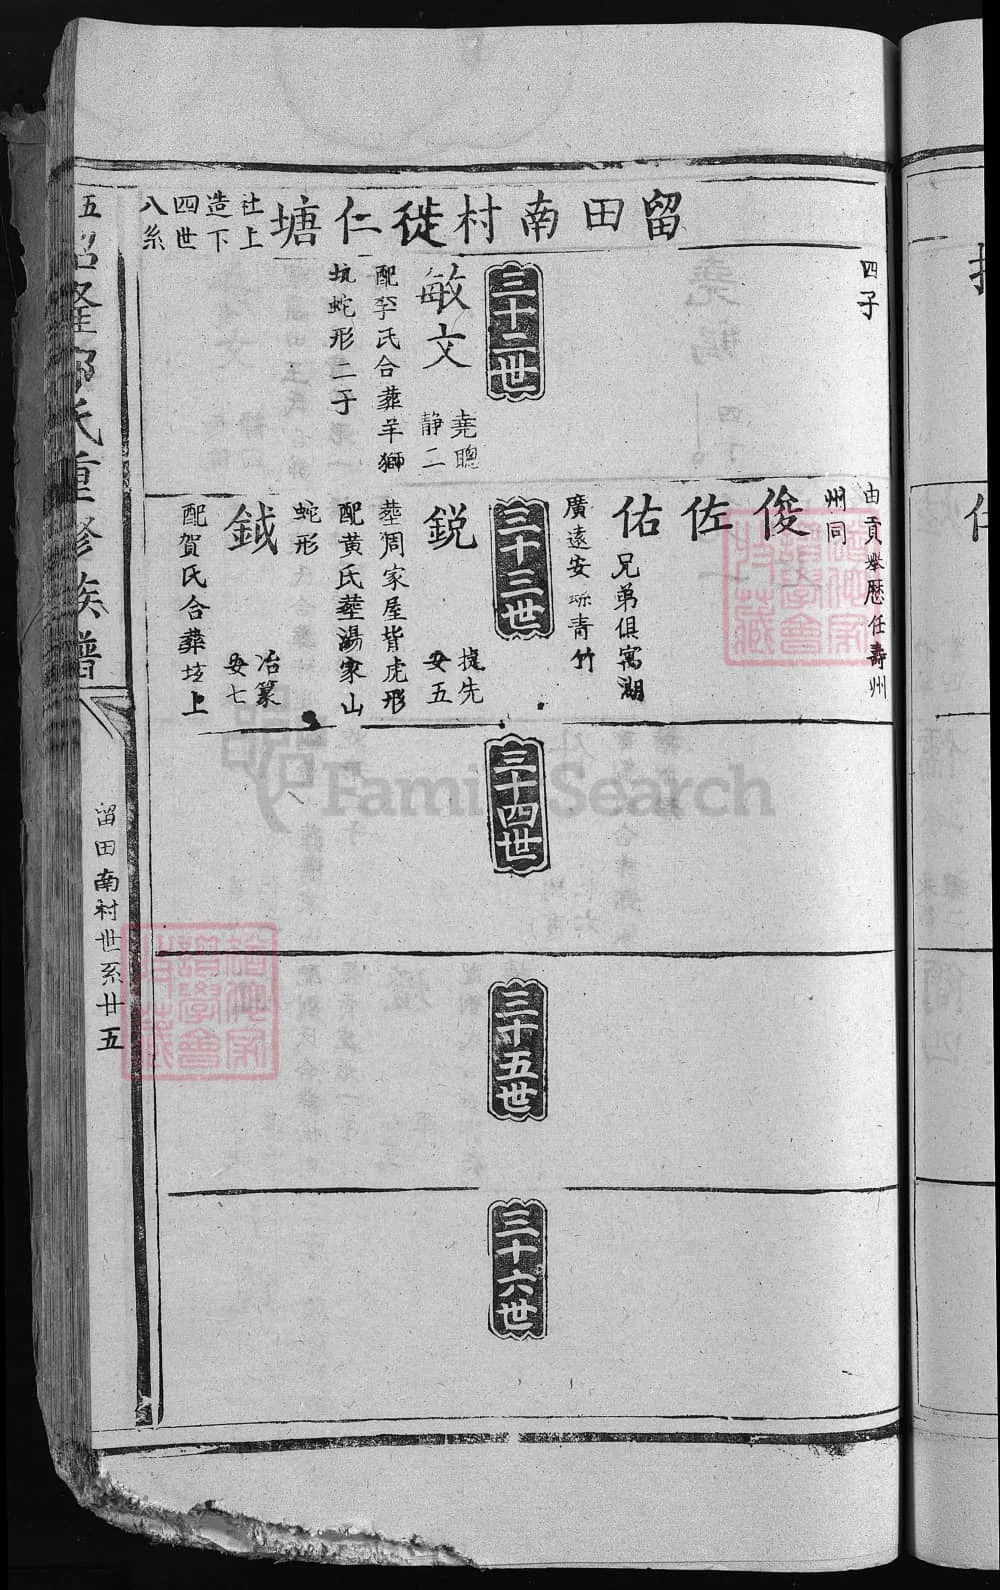 留田南村徙仁塘
社上
造下
四世
八系
四子
三十二世
敏文
堯聰
静二
配李氏合葬羊獅
坑蛇形二子
由貢舉歷任壽州
州同
俊
佐
佑
兄弟俱寓湖
廣遠安 青竹
三十三世
鋭
捷先
安五
葬周家屋背虎形
配黄氏葬湯家山
蛇形
鉞
冶篆
安七
配賀氏合葬 上
三十四世
三十五世
三十六世
五 氏重修族譜
留田南村世系廿五
FamilySearch